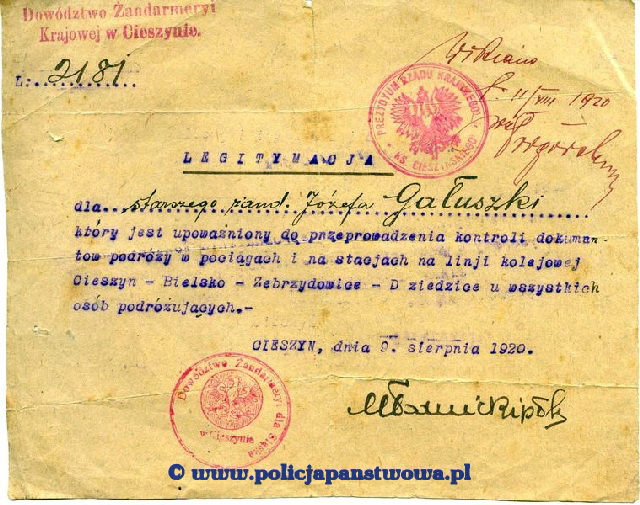 Dowództwo Żandarmeryi
Krajowej w Cieszynie.
L: 2181
PREZYDYUM RZĄDU KRAJOWEGO
KS. CIESZYŃSKIEGO
11/VIII 1920
LEGITYMACJA
dla starszego żand. Józefa Gałuszki
który jest upoważniony do przeprowadzenia kontroli dokuman-
tow podróży w pociągach i na stacjach na linji kolejowej
Cieszyn - Bielsko - Zebrzydowice - D ziedzice u wszystkich
osób podróżujących.-
CIESZYN, dnia 9. sierpnia 1920.
Dowództwo Żandarmeryi dla Śląska
w Cieszynie
© www.policjapanstwowa.pl